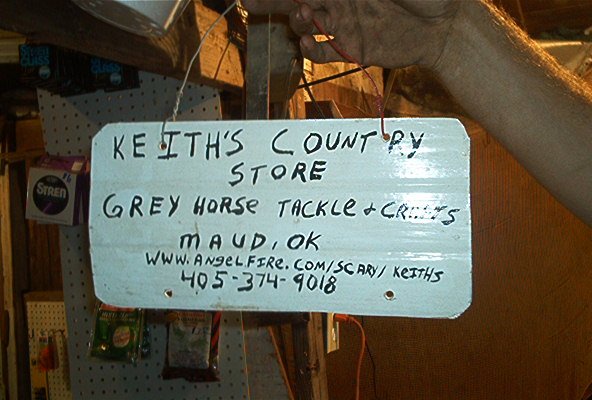 KEITH'S COUNTRY
STORE
GREY HORSE TACKLE & CRAFTS
MAUD, OK
WWW.ANGELFIRE.COM/SCARY/KEITHS
405-374-9018
STREN